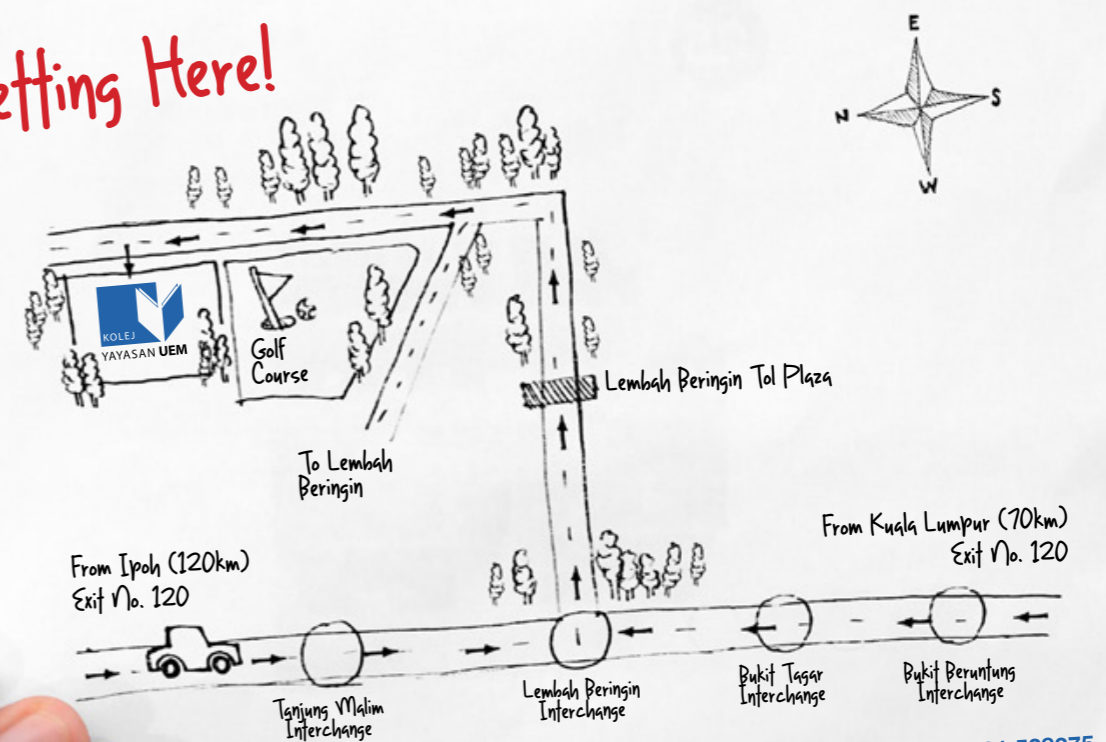 etting Here!
E
N
S
W
KOLEJ
YAYASAN UEM
Golf
Course
Lembah Beringin Tol Plaza
To Lembah
Beringin
From Kuala Lumpur (70km)
Exit No. 120
From Ipoh (120km)
Exit No. 120
Tanjung Malim
Interchange
Lembah Beringin
Interchange
Bukit Tagar
Interchange
Bukit Beruntung
Interchange